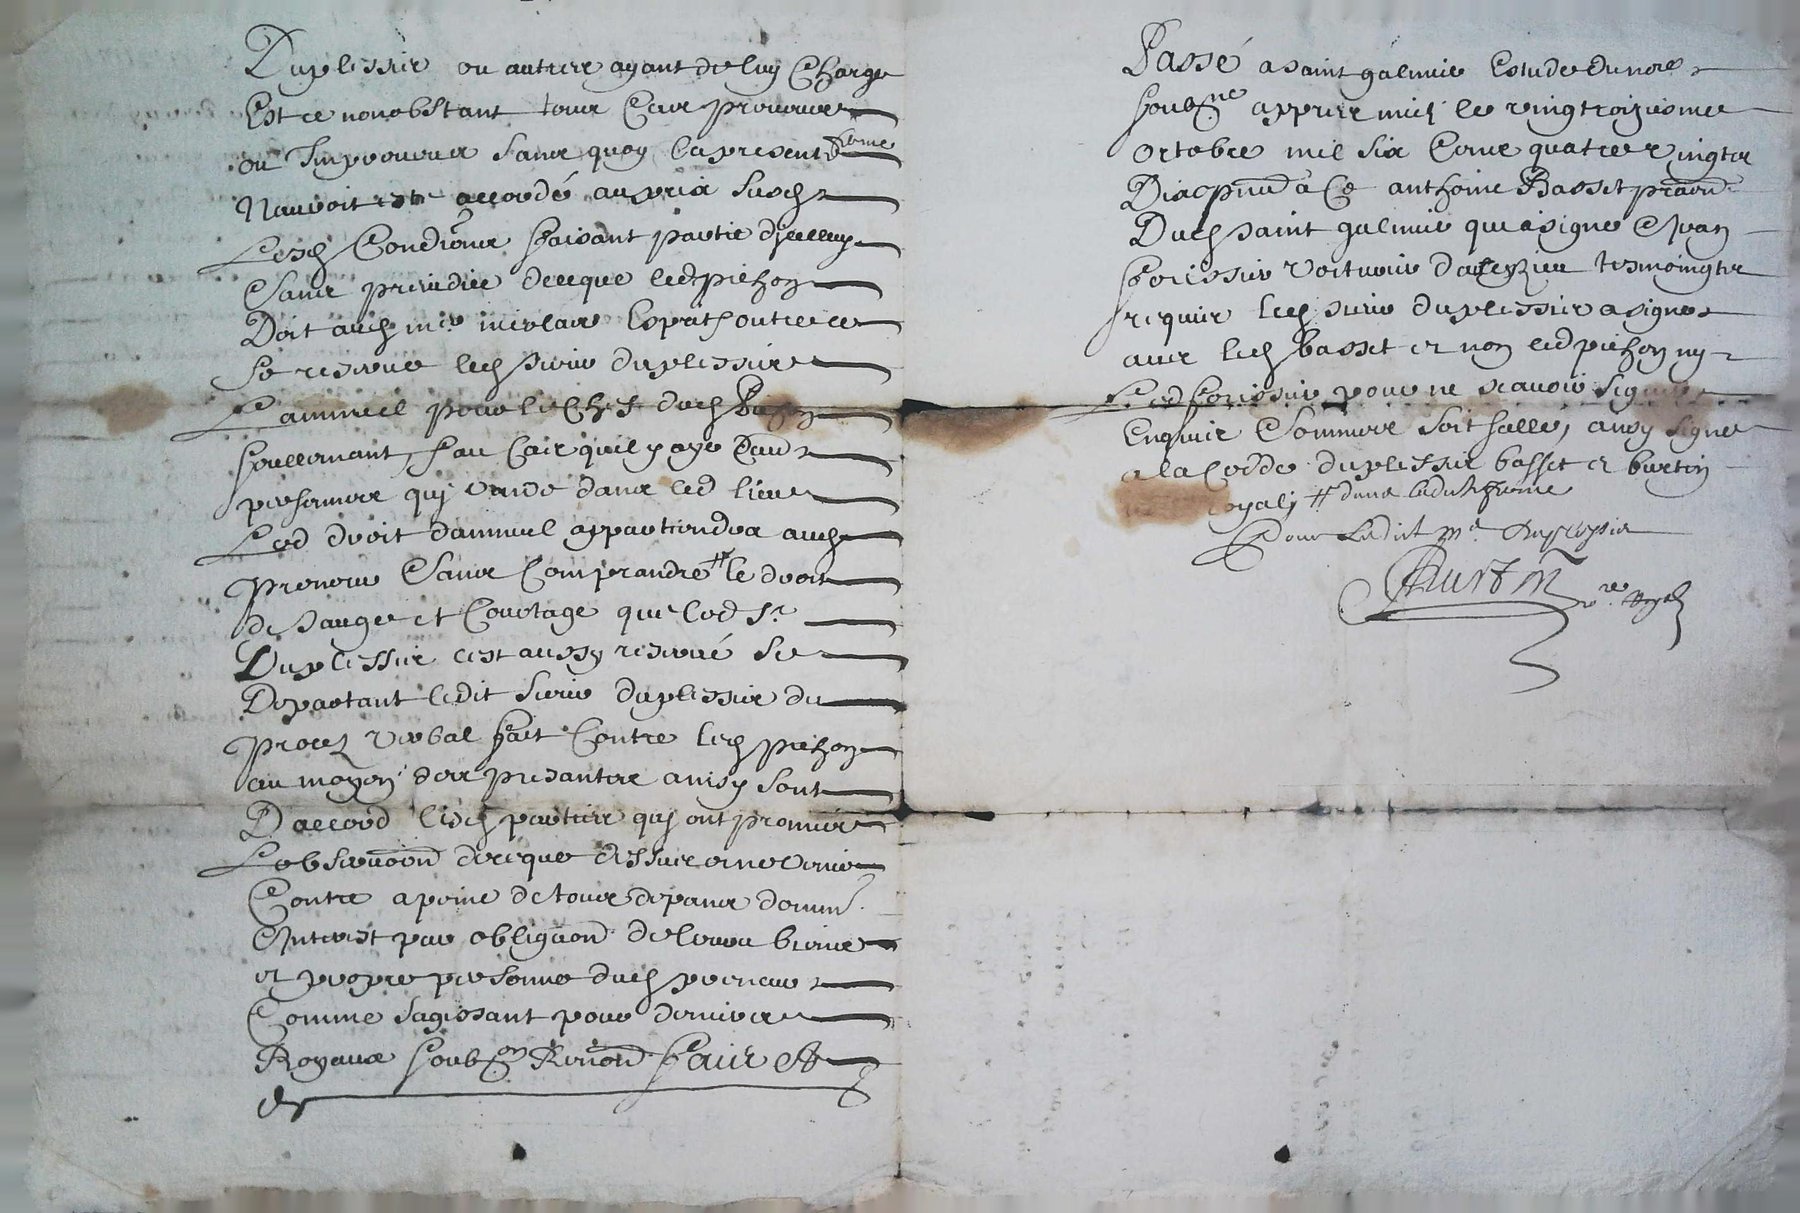 Duplessis ou autres ayant de luy Charge
Est ce nonobstant tous Cas preveus
ou Impreveus sans quoy la presente ferme
Nauroit este accordé au prix susd
Lesd Condi͠ons faisant partie dicelluy
Sans preiudice de ce que led pichon
Doit aud outre ce
se reserve led sieur duplessis
Lannuel pour le Chef dud Pichon
seullemant, sau Cas quil y aye dau
personnes quj vande dans led lieu
Led droit dannuel appartiendra aud
preneur Sans Comprandre # le droit
de Jauge et Courtage que led Sr
Duplessis cest aussy reservé se
Departant ledit sieur duplessis du
procez verbal fait Contre led pichon
au moyen des presantes ainsy sont
Daccord lesd parties quj ont promis
Lobservaõn de ce que dessus et ne venir
Contre a peine de tous depans domm
Interest par obligaõn de leurs biens
et propre personne dud preneur
Comme sagissant pour deniers
Royaux soubzon Renonõn Faict &
Passé a saint galmier Estude du nore
soubzne appres midi le vingtroiziesme
octobre mil six Cens quatre vingts
Dix pnt a Ce anthoine Basset praõn
Dud saint galmier qui a signe Et Jean
forissier voiturier tesmoingtz
requis led sieur duplessis a signe
avec led basset et non led pichon ny
Led forissier pour ne scavoir signer
Enquis Sommes soit sellé, ainsy signe
a la Cedde duplessis basset et burtin
royal, # dans ladite ferme
Pour Ledict Mr Duplessis
Burtin
nre Royal